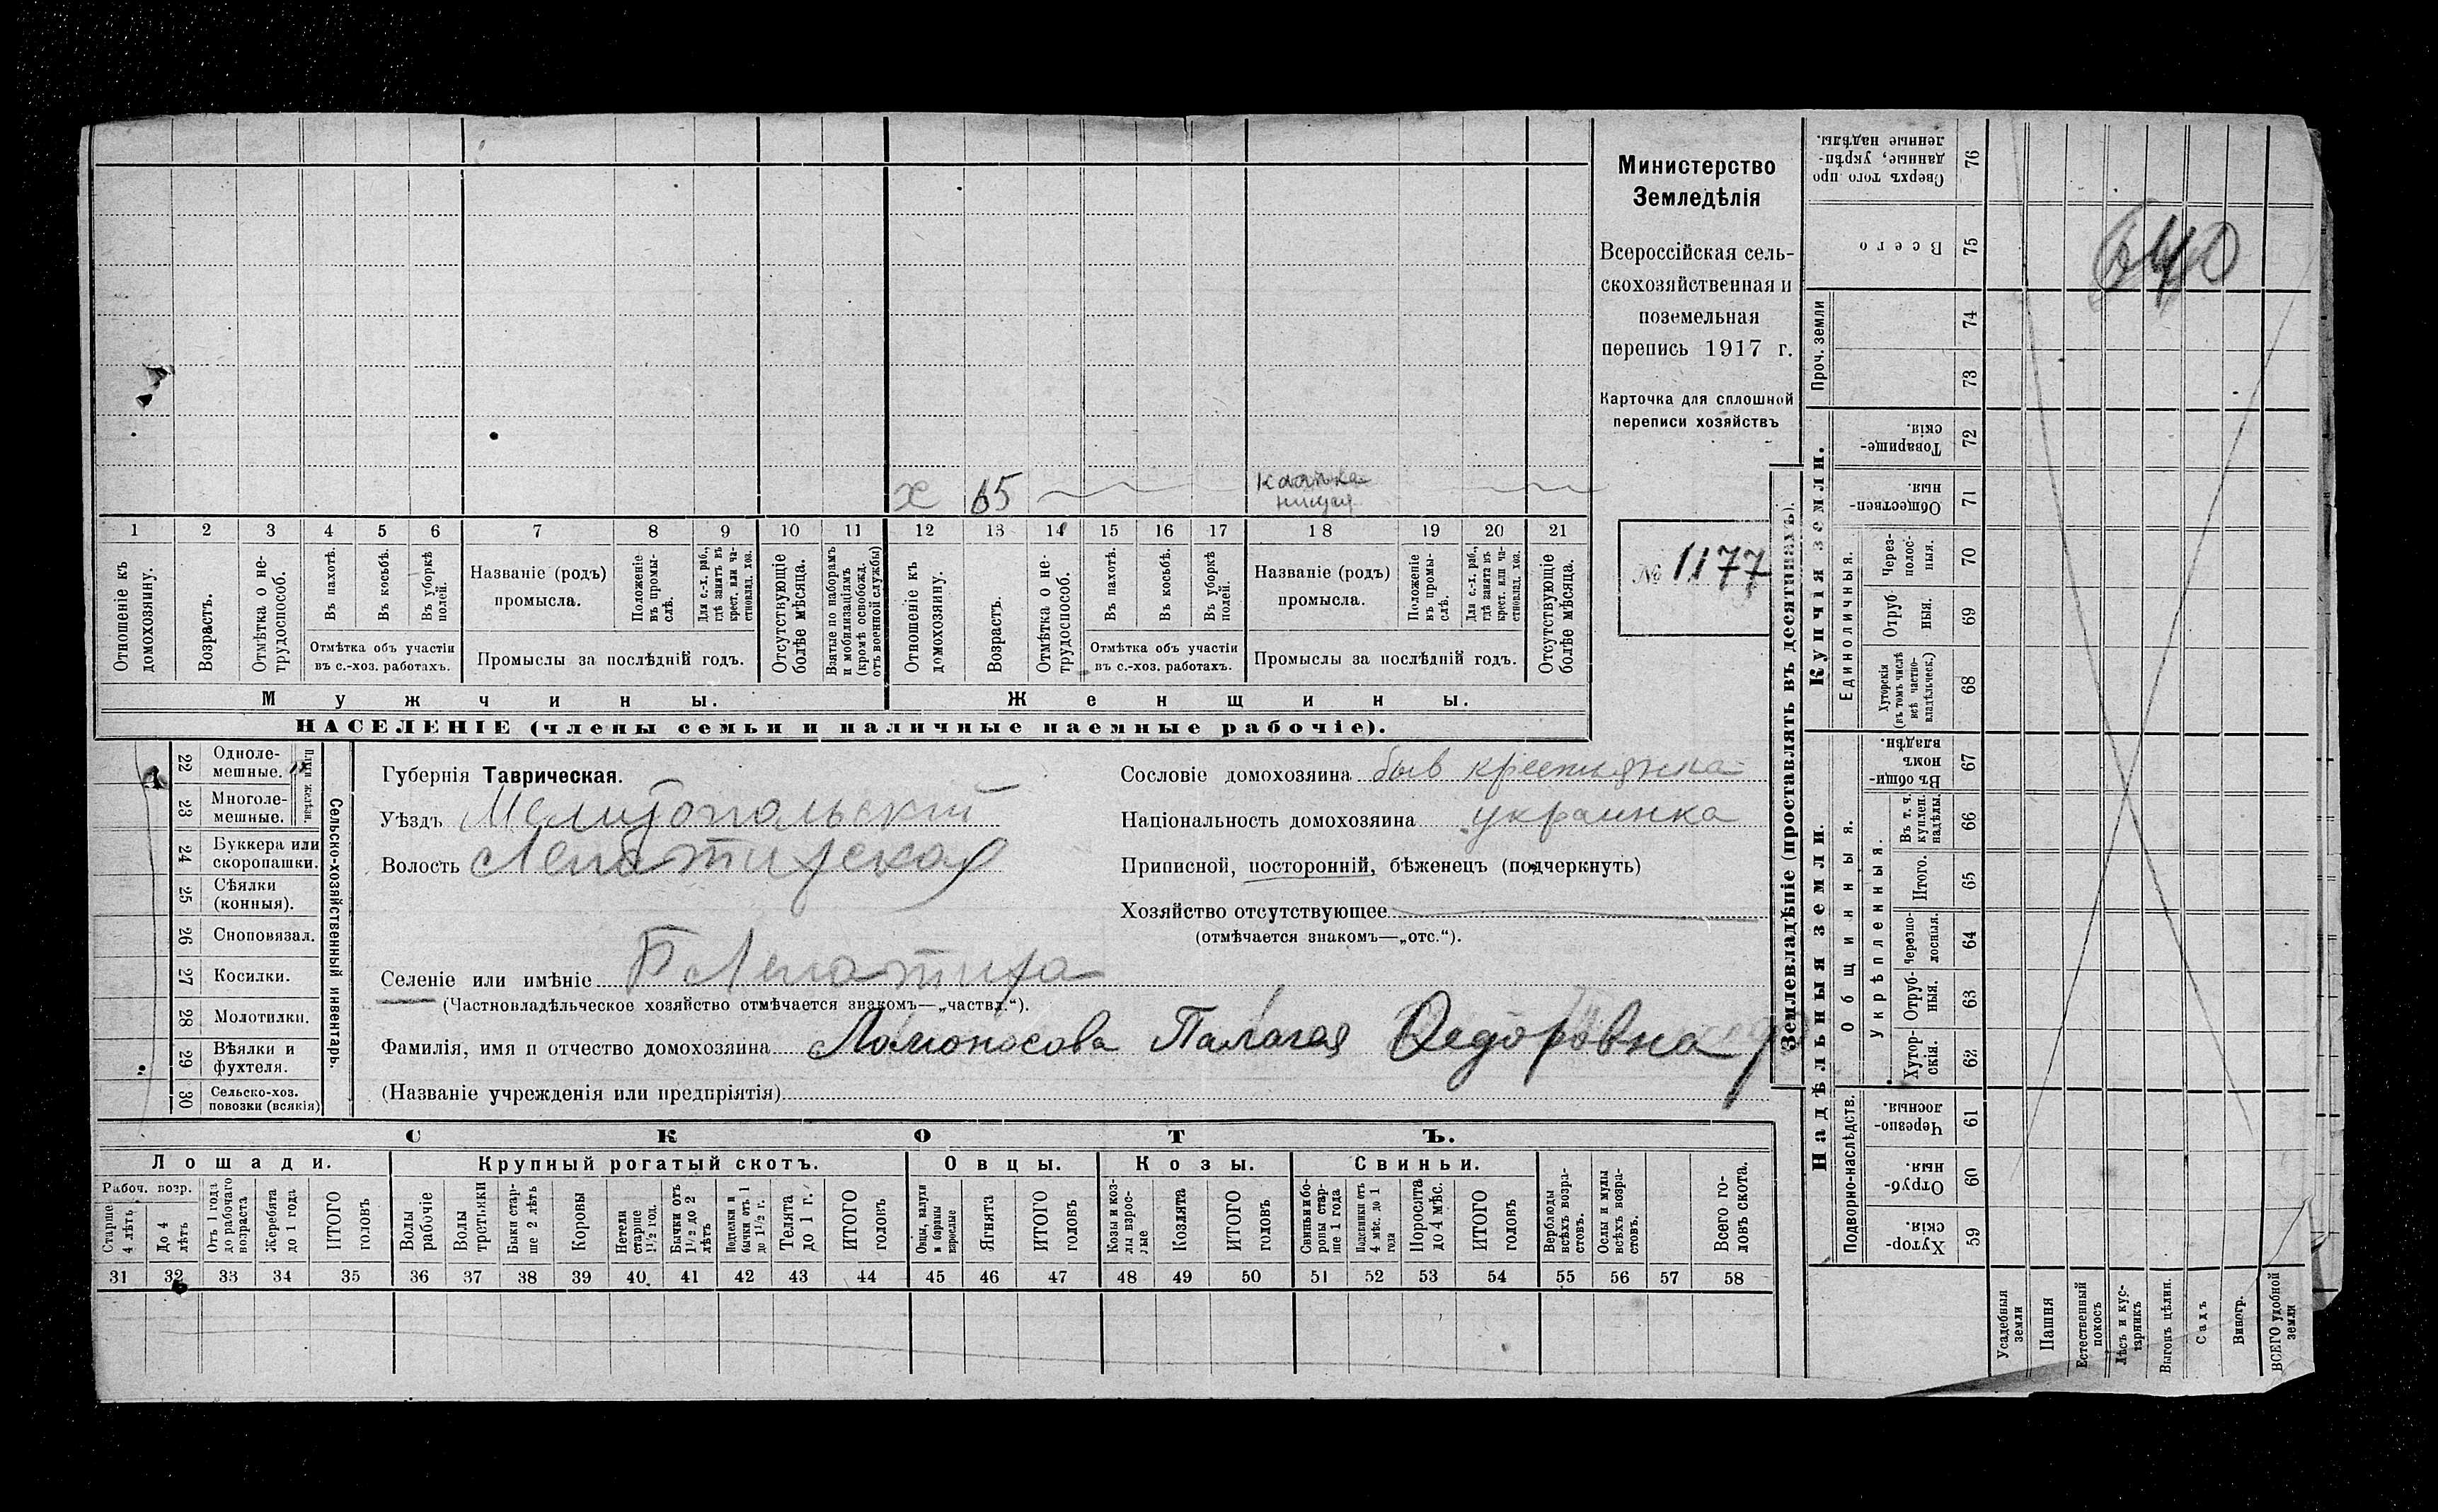 Министерство
Земледѣлія
Всероссійская сель-
скохозяйственная и
поземельная
перепись 1917 г.
Карточка для сплошной
переписи хозяйствъ
№ 1177
х 65 нищая
1 2 3 4 5 6 7 8 9 10 11 12 13 14 15 16 17 18 19 20 21
Отношеніе къ домохозяину.
Возрастъ.
Отмѣтка о не-трудоспособ.
Въ пахотѣ.
Въ косьбѣ.
Въ уборкѣ полей.
Отмѣтка объ участіи
въ с.-хоз. работахъ.
Названіе (родъ)
промысла.
Положеніе въ промы-слѣ.
Для с.-х. раб., гдѣ занятъ въ крест. или ча-стновлад. хоз.
Промыслы за послѣдній годъ.
Отсутствующіе болѣе мѣсяца.
Взятые по наборамъ и мобилизаціямъ (кромѣ освобожд. отъ военной службы)
Отношеніе къ домохозяину.
Возрастъ.
Отмѣтка о не-трудоспособ.
Въ пахотѣ.
Въ косьбѣ.
Въ уборкѣ полей.
Отмѣтка объ участіи
въ с.-хоз. работахъ.
Названіе (родъ)
промысла.
Положеніе въ промы-слѣ.
Для с.-х. раб., гдѣ занята въ крест. или ча-стновлад. хоз.
Промыслы за послѣдній годъ.
Отсутствующіе болѣе мѣсяца.
Мужчины.
Женщины.
НАСЕЛЕНІЕ (члены семьи и наличные наемные рабочіе).
22 Одноле-мешные.
23 Многоле-мешные.
24 Буккера или скоропашки.
25 Сѣялки (конныя).
26 Сноповязал.
27 Косилки.
28 Молотилки.
29 Вѣялки и фухтеля.
30 Сельско-хоз. повозки (всякія)
Сельско-хозяйственный инвентарь.
Губернія Таврическая.
Уѣздъ Мелитопольский
Волость Лепатихская
Селеніе или имѣніе Б Лепатиха
(Частновладѣльческое хозяйство отмѣчается знакомъ—„частвл.“).
Фамилія, имя и отчество домохозяина Ломоносова Палагея Федоровна
(Названіе учрежденія или предпріятія)
Сословіе домохозяина быв крестьянка
Національность домохозяина украинка
Приписной, посторонній, бѣженецъ (подчеркнуть)
Хозяйство отсутствующее
(отмѣчается знакомъ—„отс.“).
СКОТЪ.
Лошади.
Крупный рогатый скотъ.
Овцы.
Козы.
Свиньи.
Рабоч. возр.
Старше 4 лѣтъ
До 4 лѣтъ
Отъ 1 года до рабочаго возраста
Жеребята до 1 года
ИТОГО головъ
Волы рабочіе
Волы третьяки
Быки стар-ше 2 лѣтъ
Коровы
Нетели старше 1 1/2 год.
Бычки отъ 1 1/2 до 2 лѣтъ
Телки и бычки отъ 1 до 1 1/2 г.
Телята до 1 г.
ИТОГО головъ
Овцы, валухи и бараны взрослые
Ягнята
ИТОГО головъ
Козы и коз-лы взрос-лые
Козлята
ИТОГО головъ
Свиньи и бо-ровы стар-ше 1 года
Подсвинки отъ 4 мѣс. до 1 года
Поросята до 4 мѣс.
ИТОГО головъ
Верблюды всѣхъ возра-стовъ.
Ослы и мулы всѣхъ возра-стовъ.
Всего го-ловъ скота.
31 32 33 34 35 36 37 38 39 40 41 42 43 44 45 46 47 48 49 50 51 52 53 54 55 56 57 58
Землевладѣніе (проставлять въ десятинахъ).
Купчія земли.
Надѣльныя земли.
Сверхъ того про-данные, укрѣп-ленные надѣлы. 76
Всего 75
Проч. земли 74 73
Товарище-скія. 72
Обществен-ныя. 71
Единоличныя.
Через-полос-ныя. 70
Отруб-ныя. 69
Хуторскія (въ томъ числѣ всѣ частно-владѣльческ.) 68
Въ общи-номъ владѣн. 67
Общинныя.
Укрѣпленныя.
Въ т. ч. куплен. надѣлы. 66
Итого. 65
Черезпо-лосныя. 64
Отруб-ныя. 63
Хутор-скія. 62
Подворно-наслѣдств.
Черезпо-лосныя. 61
Отруб-ныя. 60
Хутор-скія. 59
Усадебныя земли
Пашня
Естественный покосъ
Лѣсъ и кус-тарникъ
Выгонъ цѣлин.
Садъ
Виногр.
ВСЕГО удобной земли
640